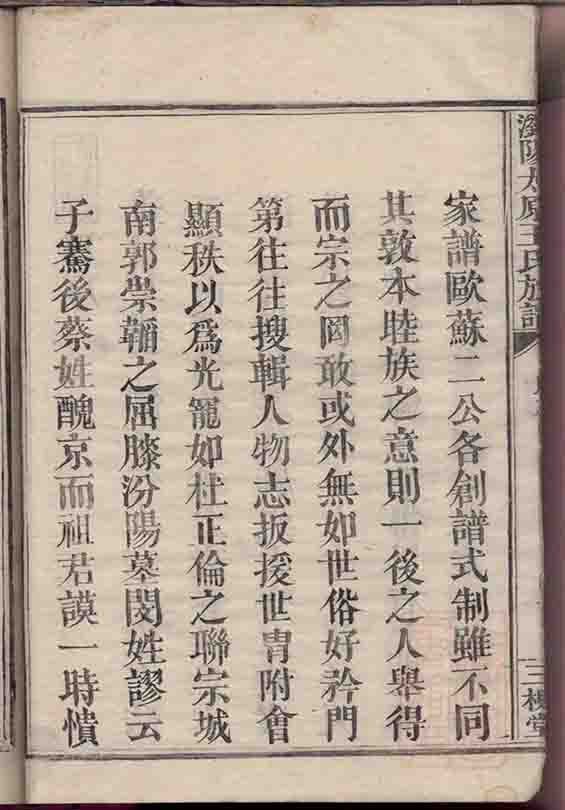 瀏陽太原王氏族譜
三槐堂
家譜歐蘇二公各創譜式制雖不同
其敦本睦族之意則一後之人舉得
而宗之罔敢或外無如世俗好矜門
第往往搜輯人物志扳援世胄附會
顯秩以爲光寵如杜正倫之聯宗城
南郭崇韜之屈膝汾陽墓閔姓謬云
子騫後蔡姓醜京而祖君謨一時憒